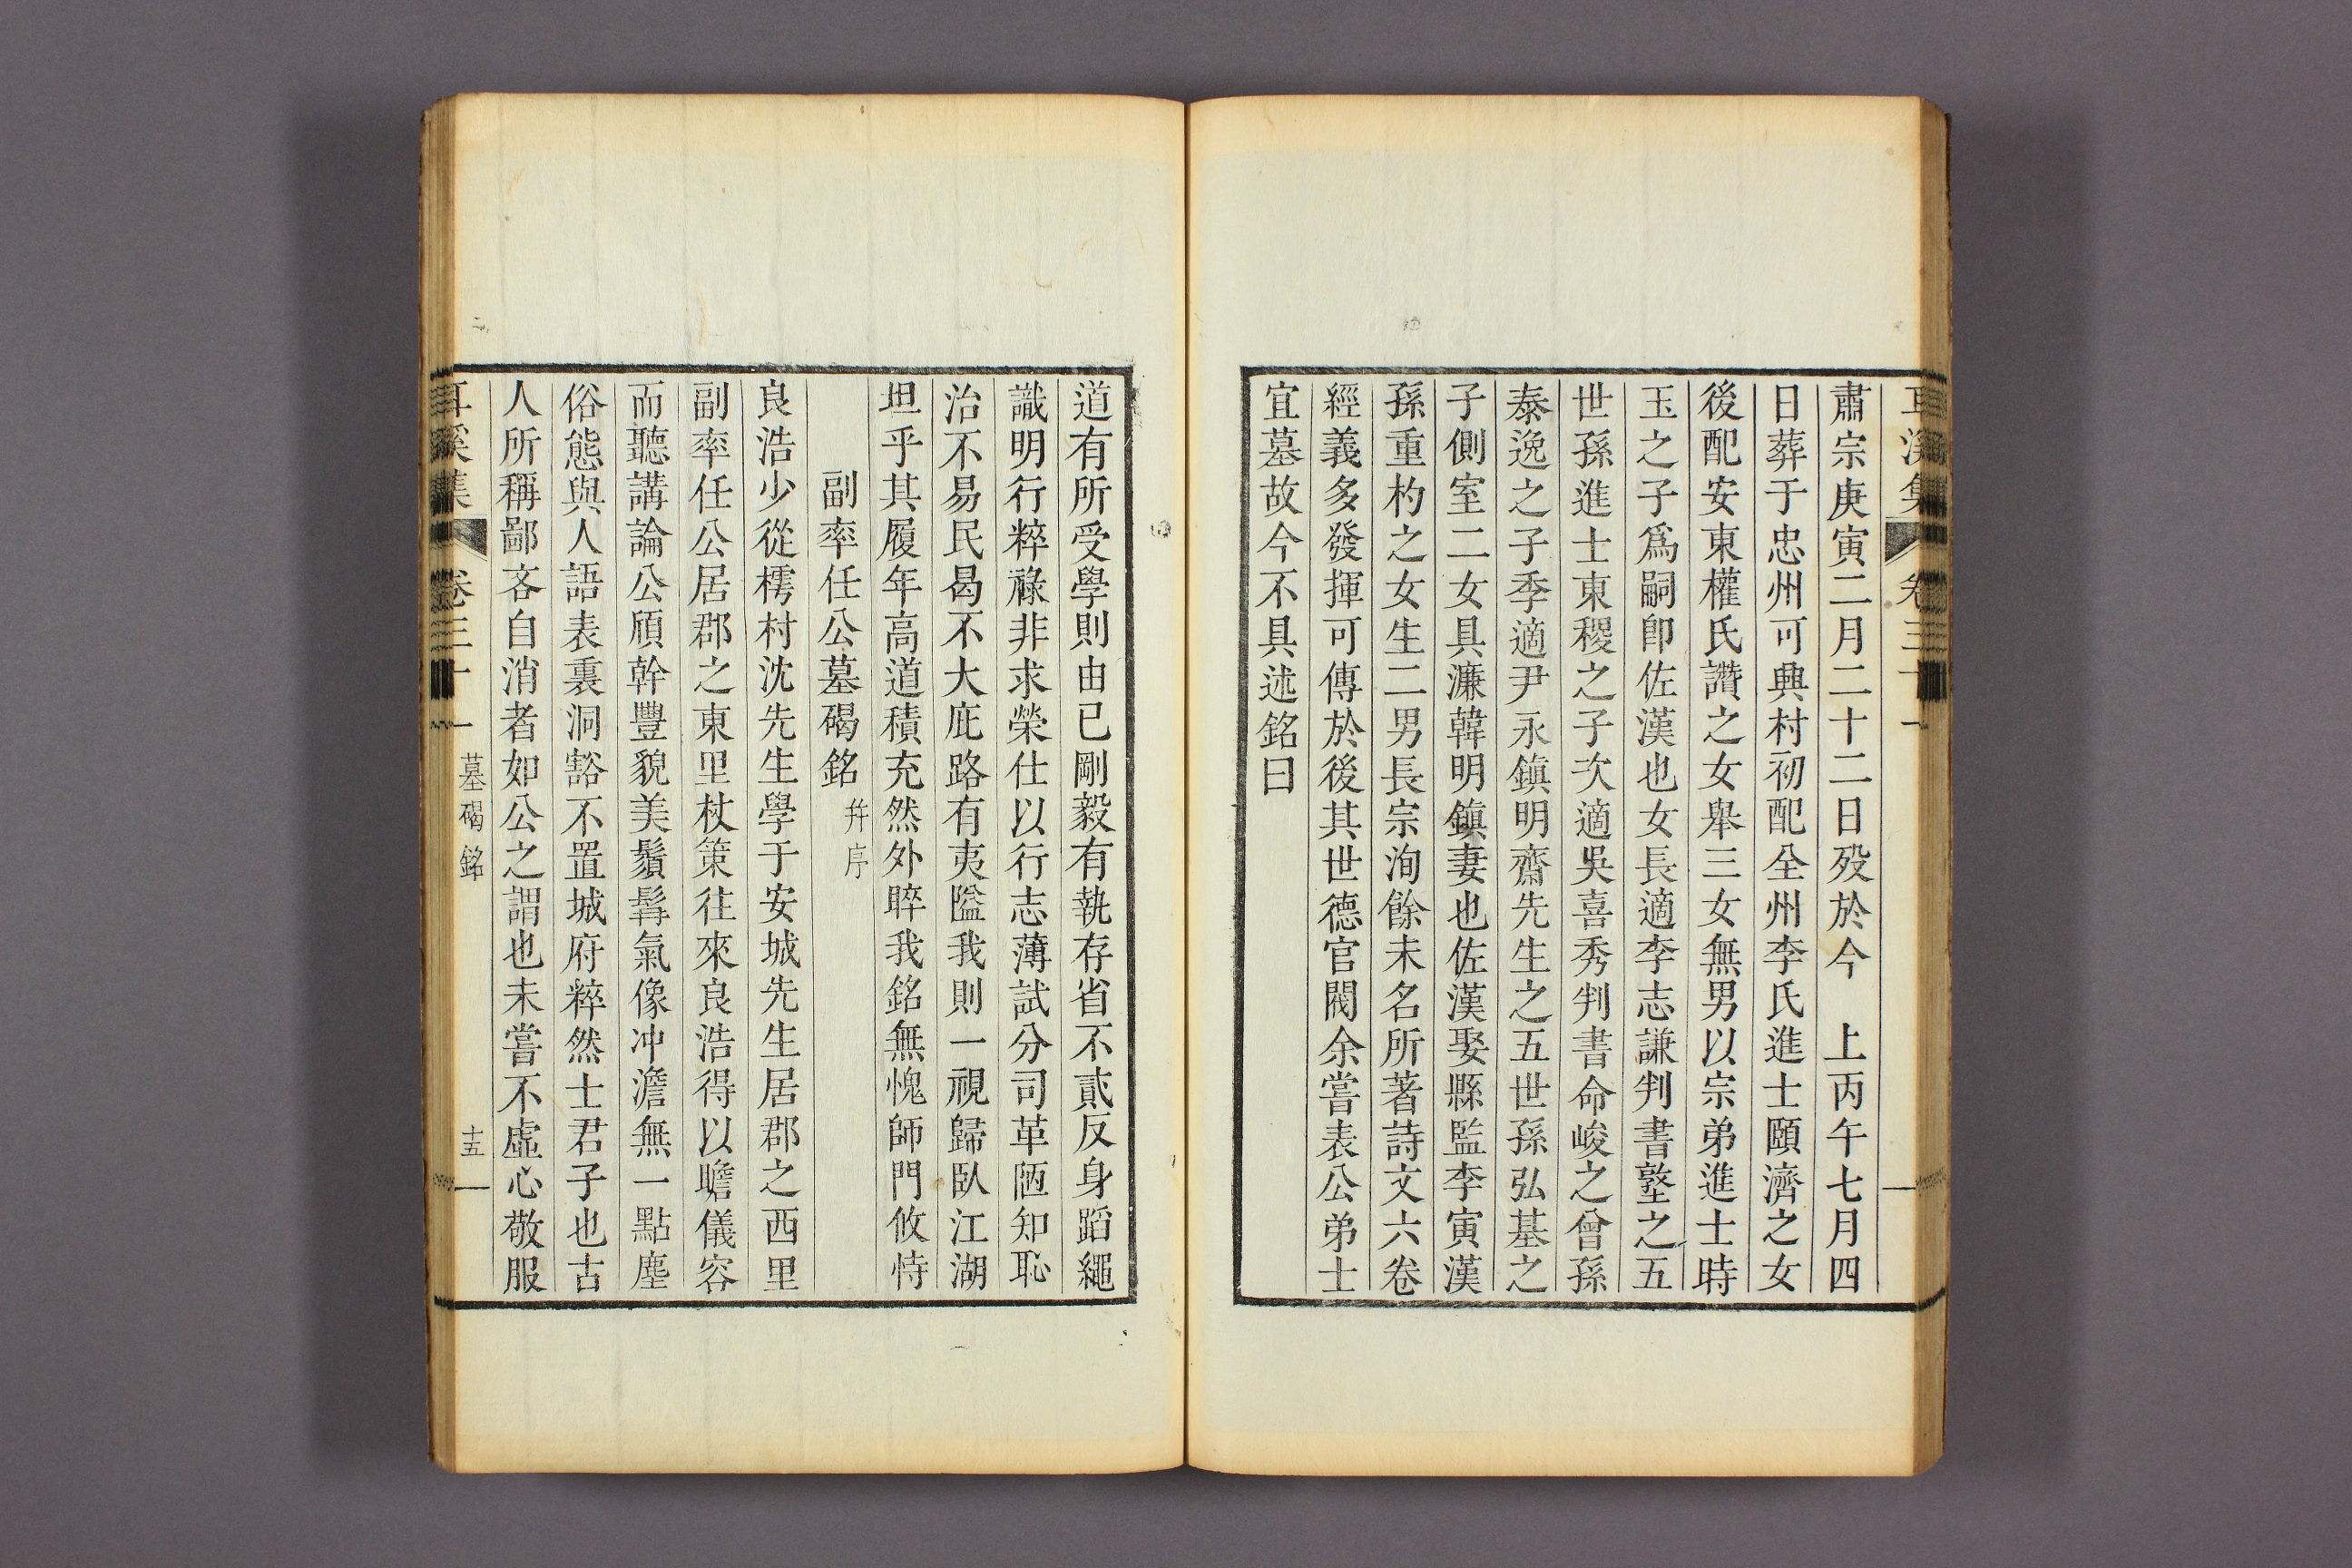 耳溪集 卷三十一
肅宗庚寅二月二十二日歿於今 上丙午七月四
日葬于忠州可興村初配全州李氏進士頤濟之女
後配安東權氏讚之女舉三女無男以宗弟進士時
玉之子爲嗣卽佐漢也女長適李志謙判書塾之五
世孫進士東稷之子次適吳喜秀判書命峻之曾孫
泰逸之子季適尹永鎭明齋先生之五世孫弘基之
子側室二女具濂韓明鎭妻也佐漢娶縣監李寅漢
孫重杓之女生二男長宗洵餘未名所著詩文六卷
經義多發揮可傳於後其世德官閥余嘗表公弟士
宜墓故今不具述銘曰
道有所受學則由已剛毅有執存省不貳反身蹈繩
識明行粹祿非求榮仕以行志薄試分司革陋知恥
治不易民曷不大庇路有夷隘我則一視歸臥江湖
坦乎其履年高道積充然外睟我銘無愧師門攸恃
副率任公墓碣銘 幷序
良浩少從樗村沈先生學于安城先生居郡之西里
副率任公居郡之東里杖策往來良浩得以瞻儀容
而聽講論公頎幹豐貌美鬚髥氣像冲澹無一點塵
俗態與人語表裏洞豁不置城府粹然士君子也古
人所稱鄙吝自消者如公之謂也未嘗不虛心敬服
耳溪集 卷三十一 墓碣銘 十五